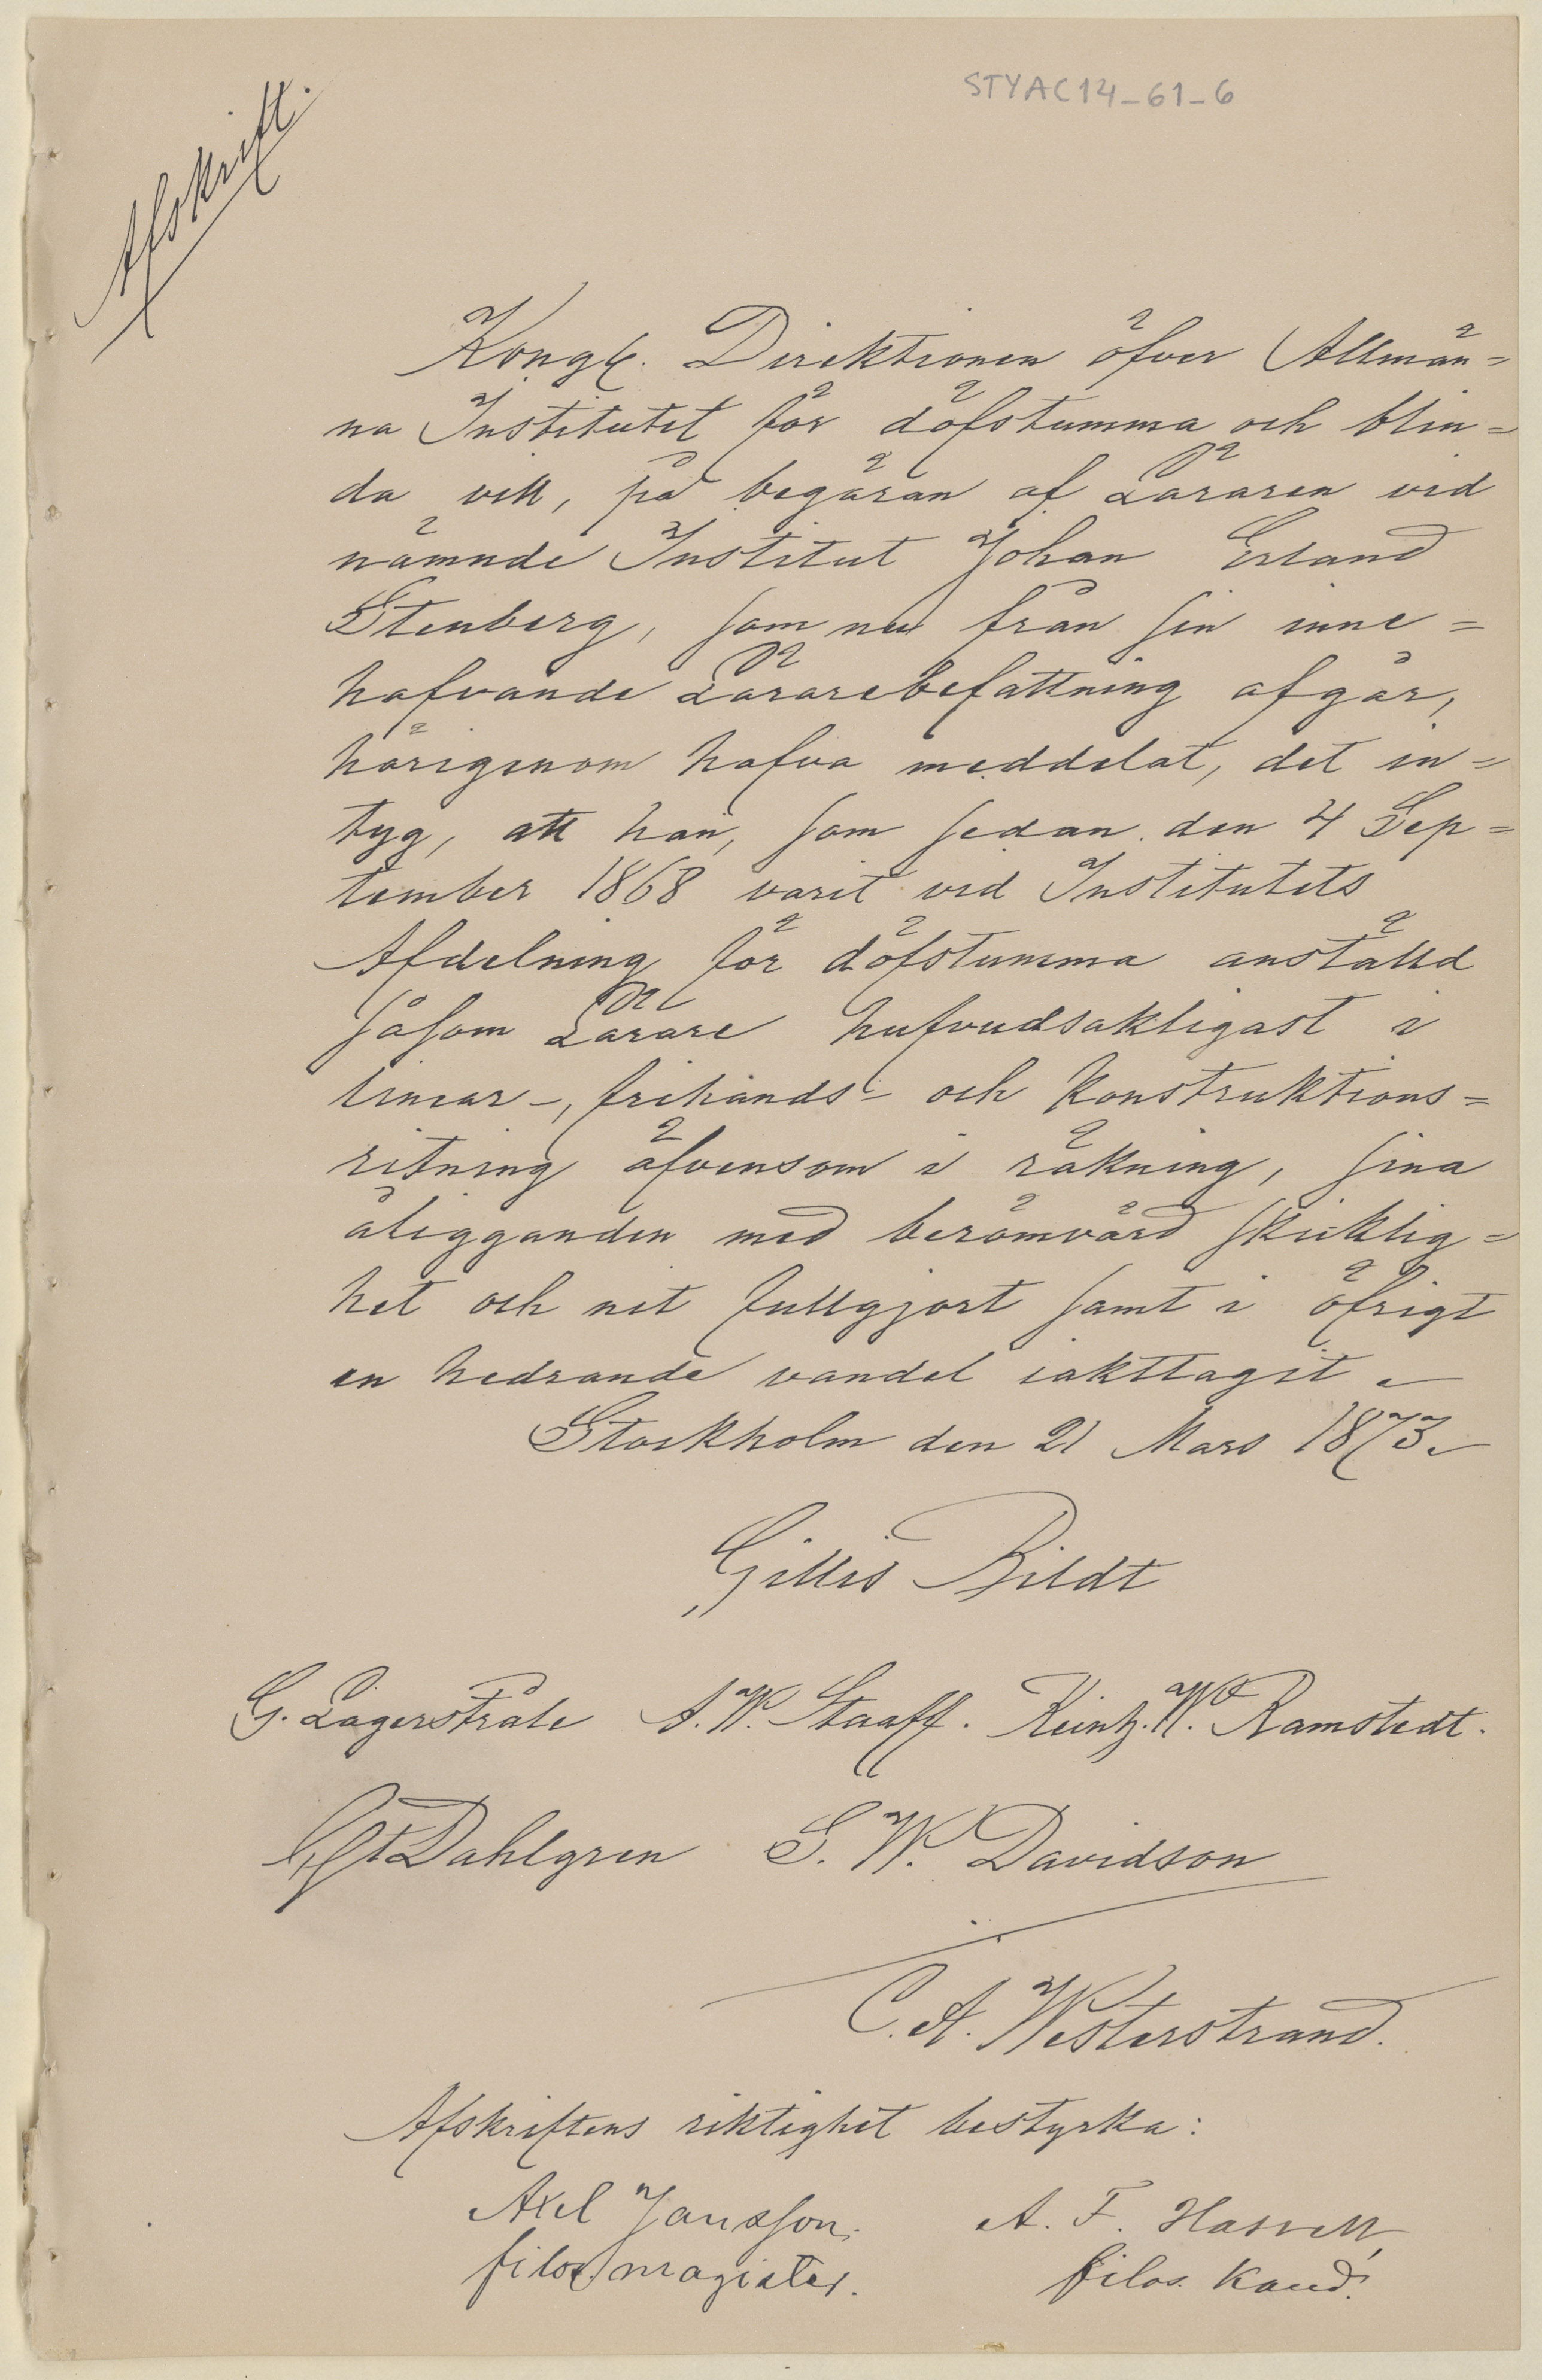 STYAC14-61-6
Afskrift.
Kongl. Direktionen öfver Allmän=
na Institutet för döfstumma och blin=
da vill, på begäran af Läraren vid
nämnde Institut Johan Erland
Stenberg, som nu från sin inne=
hafvande Lärarebefattning afgår,
härigenom hafva meddelat, det in=
tyg, att han, som sedan den 4 Sep=
tember 1868 varit vid Institutets
Afdelning för döfstumma anställd
såsom Lärare hufvudsakligast i
linear-, frihands- och Konstruktions=
ritning äfvensom i räkning, sina
åligganden med berömvärd skicklig=
het och nit fullgjort samt i öfrigt
en hedrande vandel iakttagit.
Stockholm den 21 Mars 1873.
Gillis Bildt
G. Lagerstråle A. W. Staaff. W. Ramstedt.
Dahlgren S. W. Davidson
C. A. Westerstrand.
Afskriftens riktighet bestyrka:
Axel Jansson, A. F.
filos. magister. filos. kand.